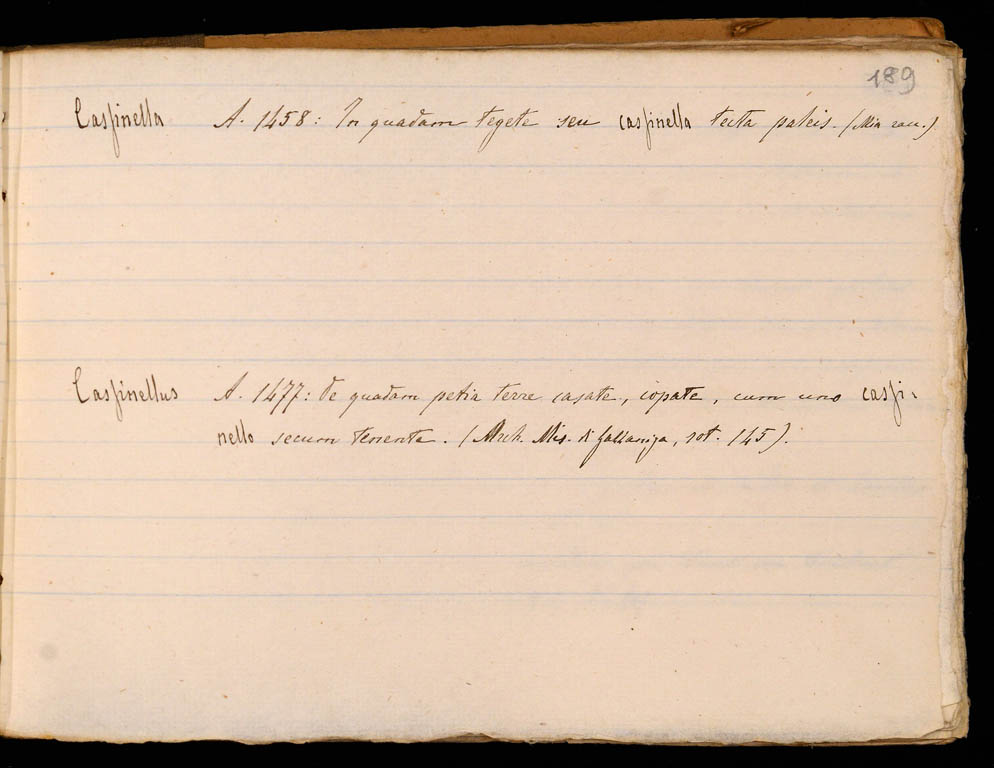 189
Caspinella A. 1458: In quadam tegete seu caspinella tecta paleis. (Mia rac.)
Caspinellus A. 1477: de quadam petia terre casate, copate, cum uno caspi-
nello secum tenente. (Arch. Mis. di , rot. 145).